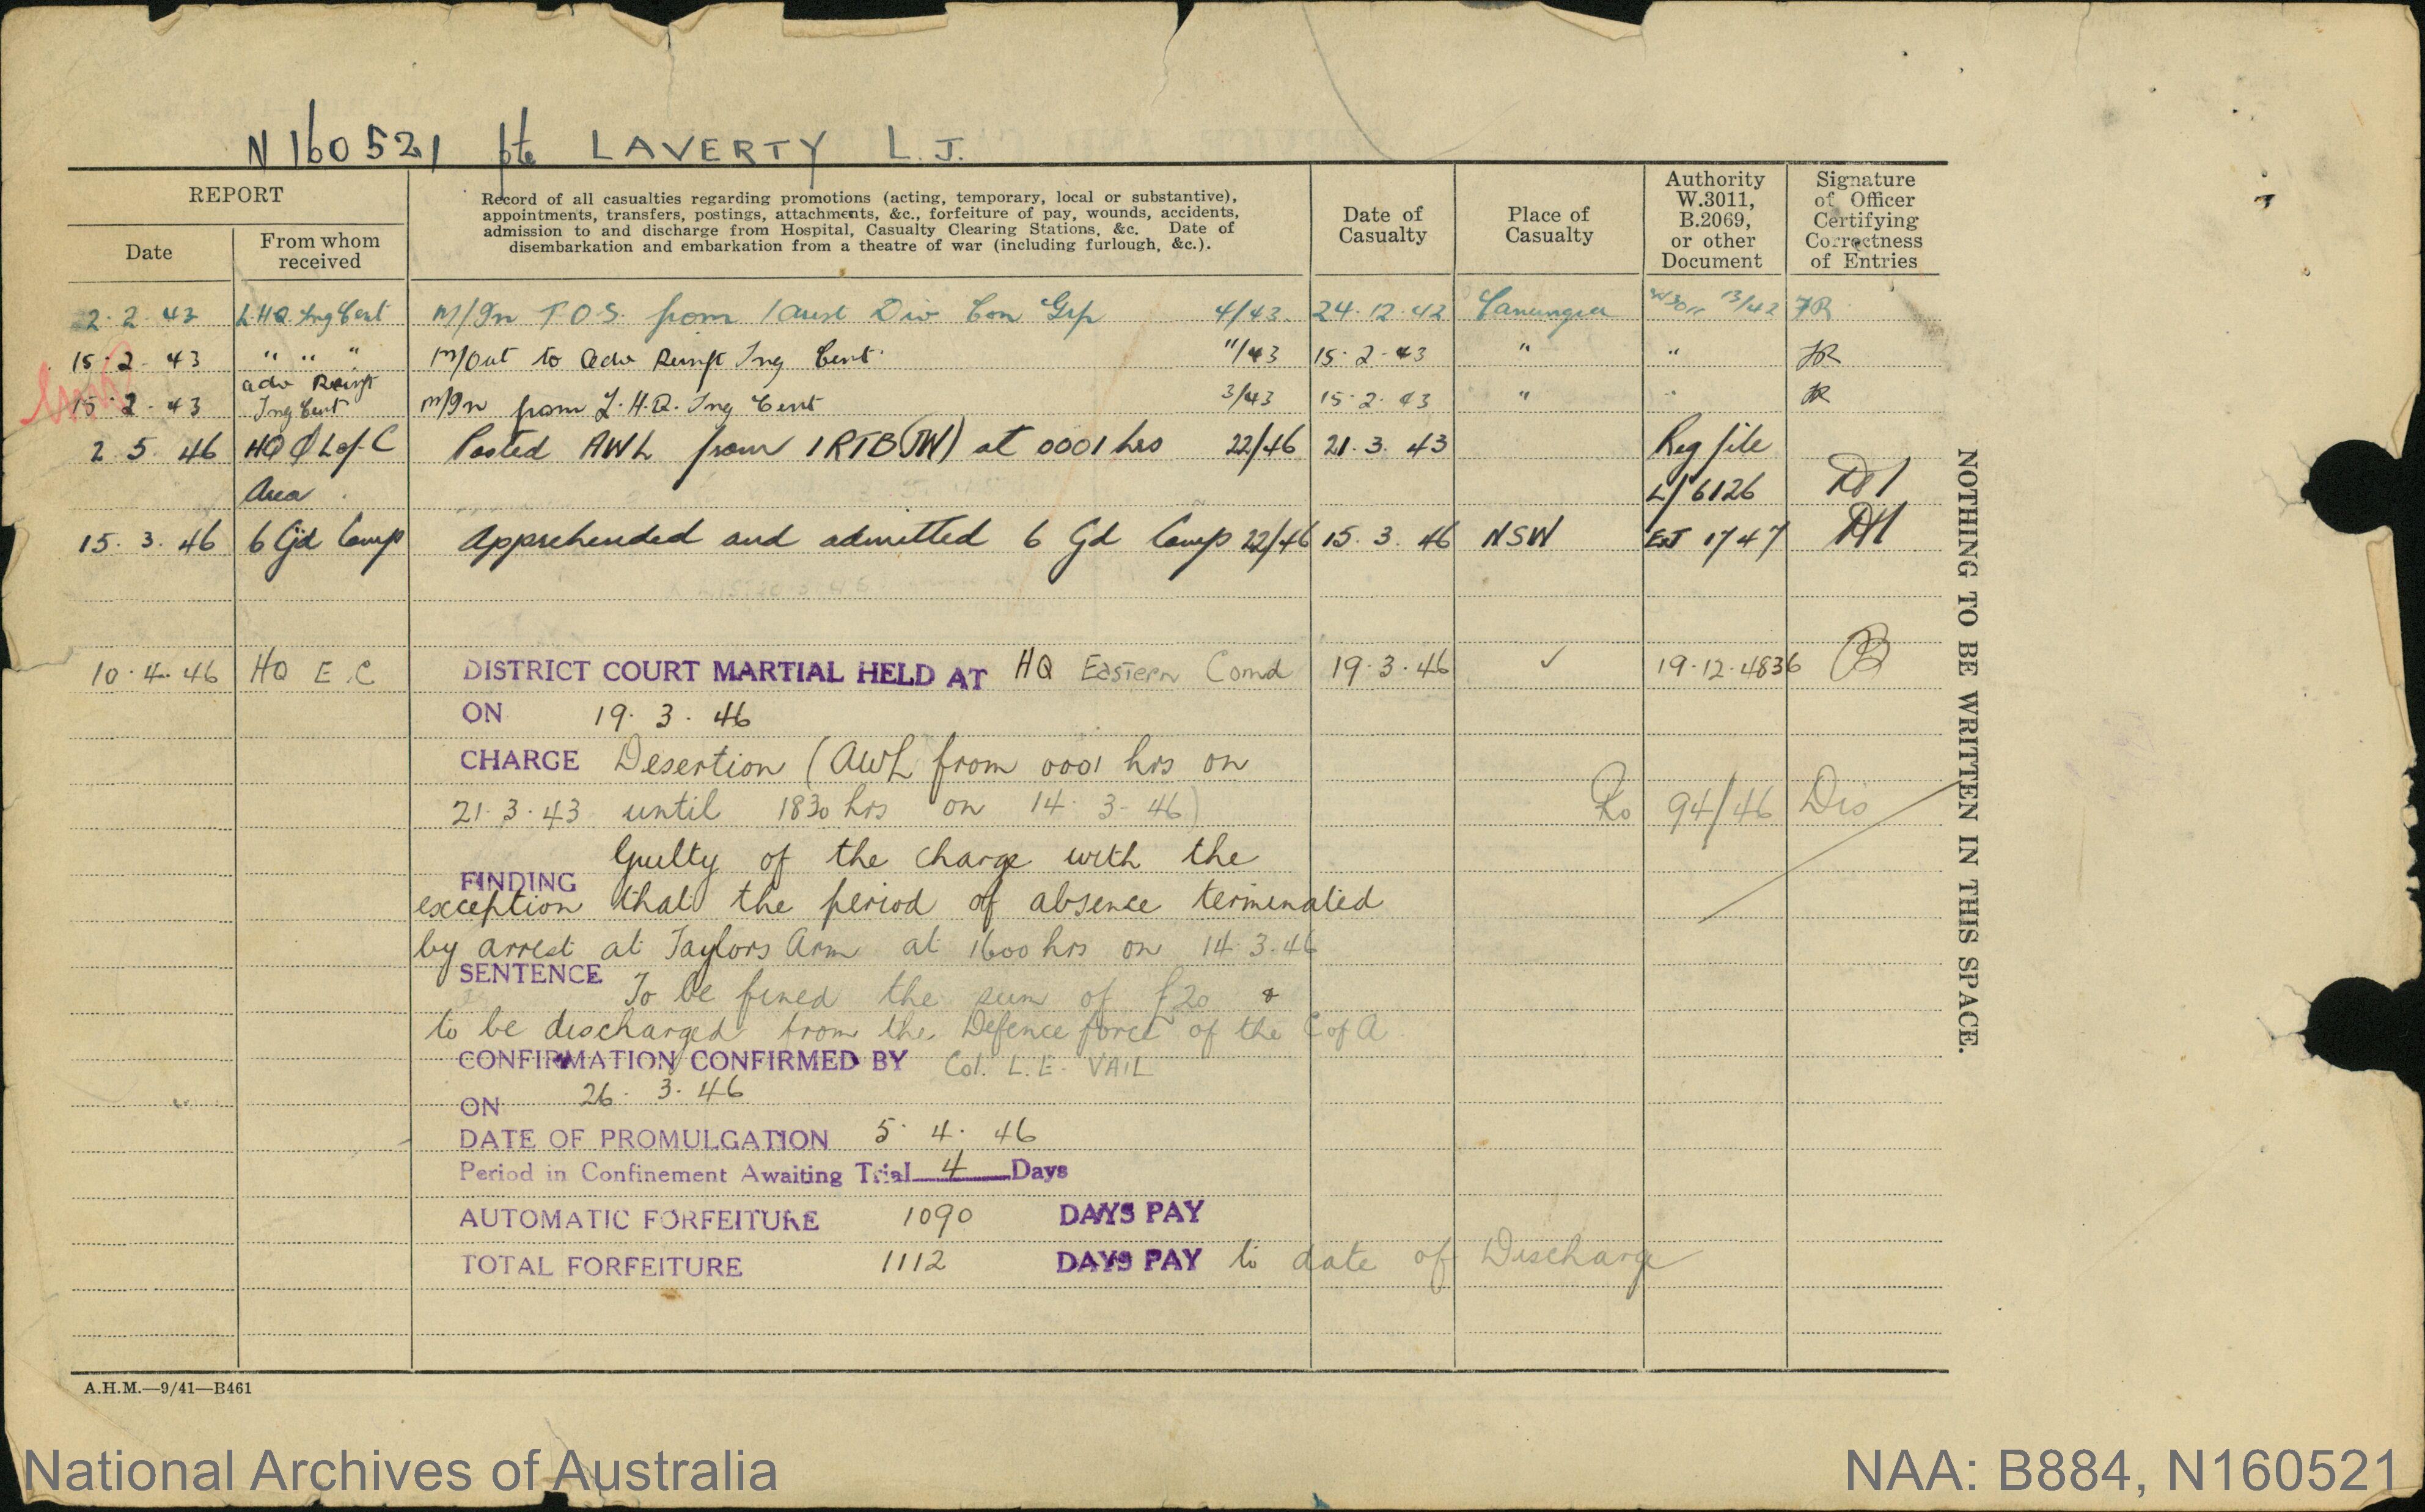 N160521 Pte LAVERTY L.J.
REPORT
Date
From whom received
Record of all casualties regarding promotions (acting, temporary, local or substantive),
appointments, transfers, postings, attachments, &c., forfeiture of pay, wounds, accidents,
admission to and discharge from Hospital, Casualty Clearing Stations, &c. Date of
disembarkation and embarkation from a theatre of war (including furlough, &c.).
Date of Casualty
Place of Casualty
Authority W.3011, B.2069, or other Document
Signature of Officer Certifying Correctness of Entries
2.2.43 L.H.Q. Trg Cent M/In T.O.S. from 1 Aust Div Con Grp 4/43 24.12.42 Canungra W3011 13/42
15.2.43 " " " M/Out to Adv Reinft Trg Cent. 11/43 15.2.43 " "
15.2.43 Adv Reinft Trg Cent M/In from L.H.Q. Trg Cent 3/43 15.2.43 "
2.5.46 HQ Q L of C Posted AWL from 1RTB(JW) at 0001 hrs 22/46 21.3.43 Reg file
Area L/6126
15.3.46 6 Gd Comp Apprehended and admitted 6 Gd Comp 22/46 15.3.46 NSW 1747
10.4.46 HQ E.C DISTRICT COURT MARTIAL HELD AT HQ Eastern Comd 19.3.46 ✓ 19.12.4836
ON 19.3.46
CHARGE Desertion (AWL from 0001 hrs on
21.3.43 until 1830 hrs on 14.3.46) Ro 94/46 Dis
Guilty of the charge with the
FINDING
exception that the period of absence terminated
by arrest at Taylors Arm at 1600 hrs on 14.3.46
SENTENCE
To be fined the sum of £20 &
to be discharged from the Defence force of the C of A
CONFIRMATION CONFIRMED BY Col. L.E. VAIL
ON 26.3.46
DATE OF PROMULGATION 5.4.46
Period in Confinement Awaiting Trial 4 Days
AUTOMATIC FORFEITURE 1090 DAYS PAY
TOTAL FORFEITURE 1112 DAYS PAY to date of Discharge
NOTHING TO BE WRITTEN IN THIS SPACE.
A.H.M.—9/41—B461
National Archives of Australia
NAA: B884, N160521